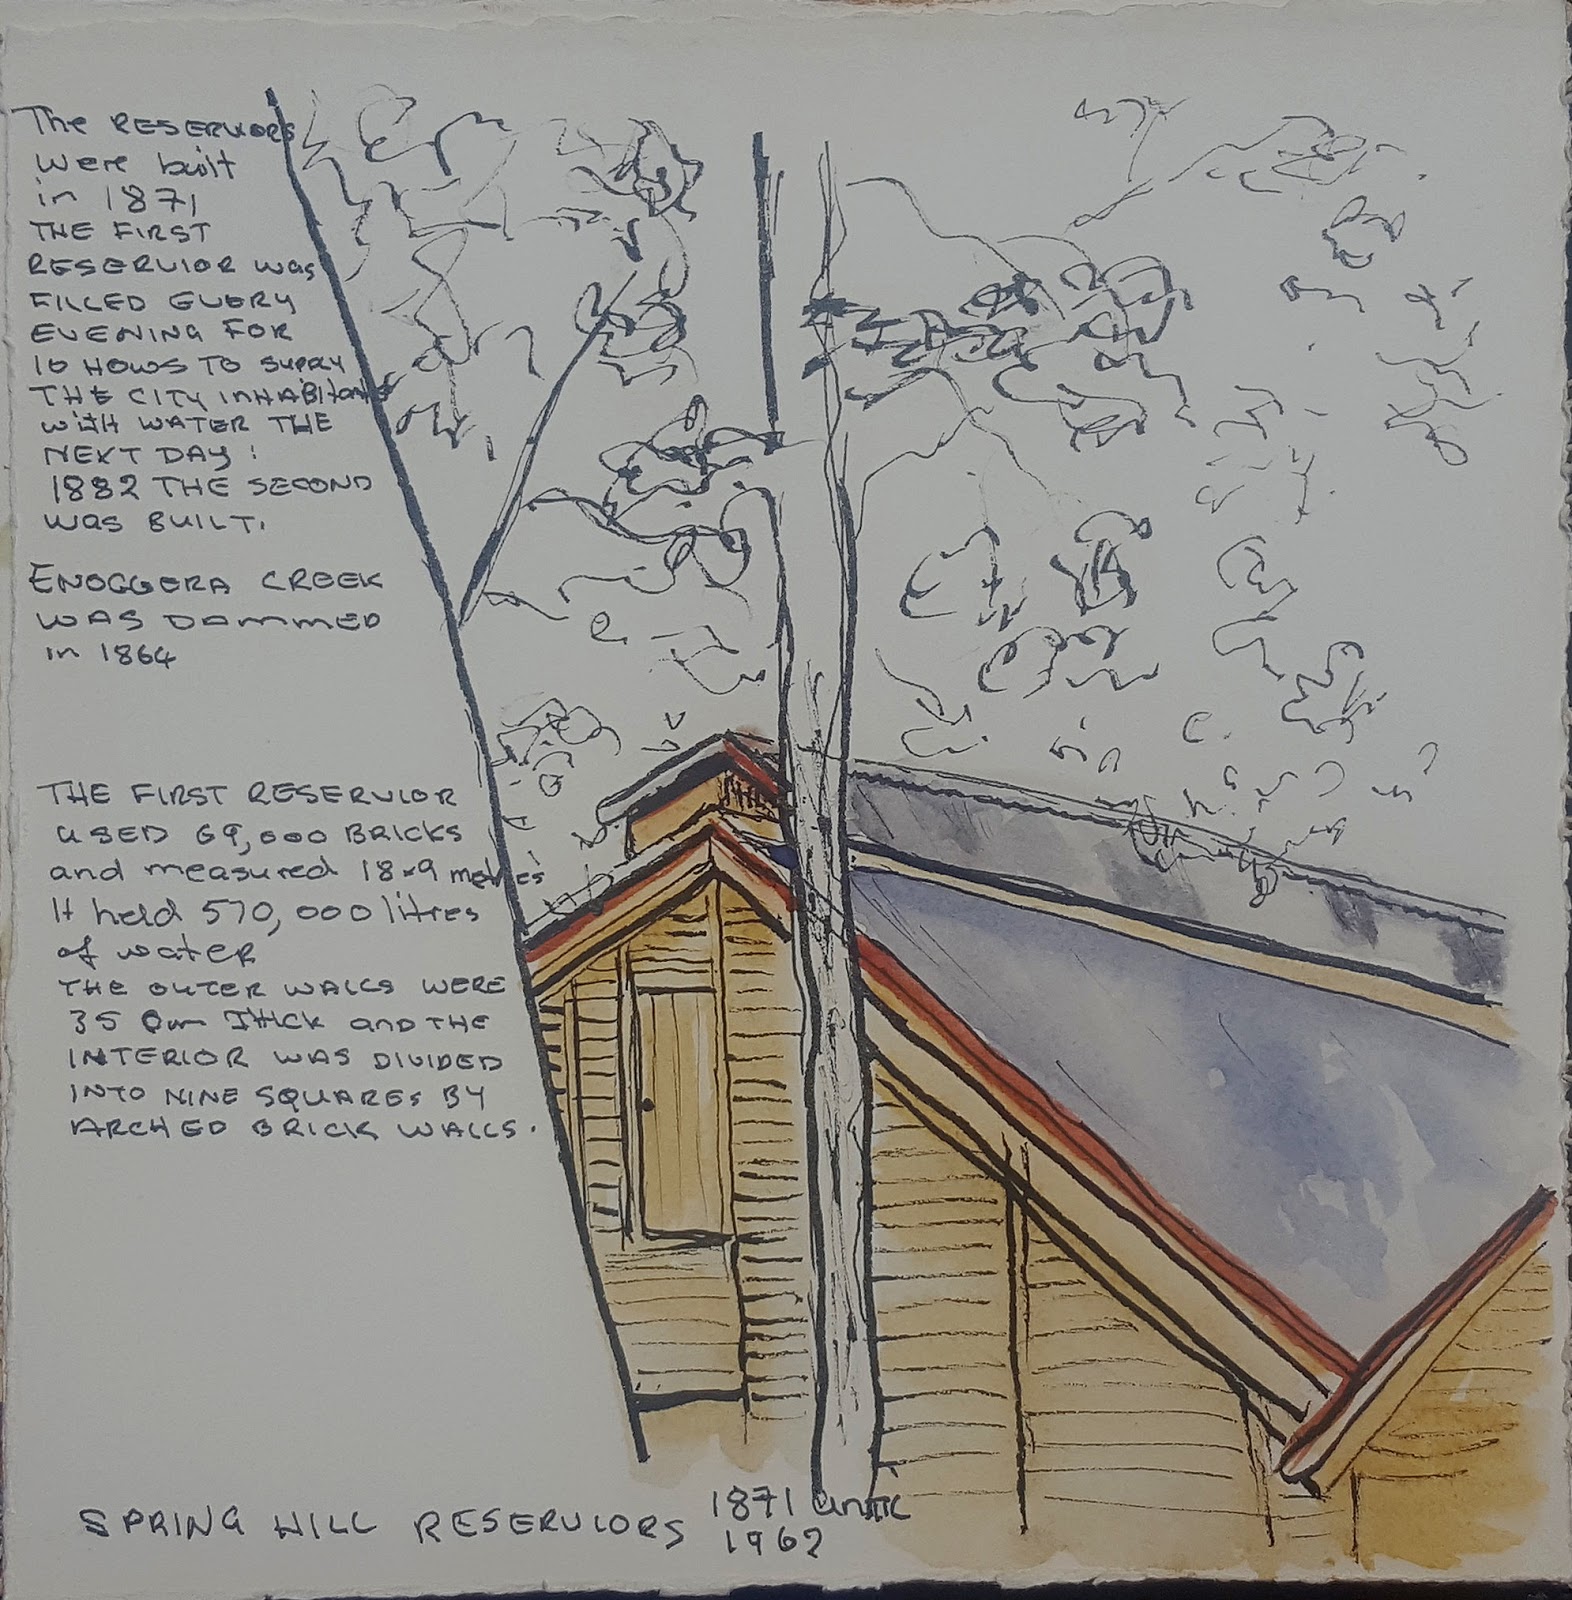 The RESERVIORS
were built
in 1871
THE FIRST
RESERVIOR was
FILLED EVERY
EVENING FOR
10 HOURS TO SUPPLY
THE CITY INHABItants
with WATER THE
NEXT DAY!
1882 THE SECOND
was BUILT.
ENOGGERA CREEK
WAS DAMMED
in 1864
THE FIRST RESERVIOR
USED 69,000 BRICKS
and measured 18x9 metres
It held 570,000 litres
of water
THE OUTER WALLS WERE
35 cm THICK and THE
INTERIOR WAS DIVIDED
INTO NINE SQUARES BY
ARCHED BRICK WALLS.
SPRING HILL RESERVIORS 1871 UNTIL
1962